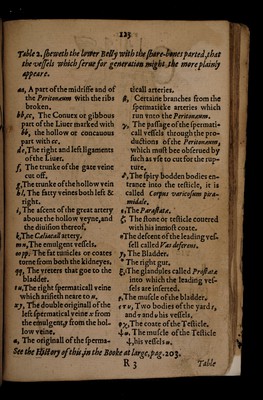 125
Table 2. sheweth the lower Belly with the share-bones parted, that
the vessels which serue for generation might the more plainly
appeare.
aa, A part of the midriffe and of
the Peritonæum with the ribs
broken.
bb,cc, The Conuex or gibbous
part of the Liuer marked with
bb, the hollow or concauous
part with cc.
de, The right and left ligaments
of the Liuer.
f, The trunke of the gate veine
cut off,
g, The trunke of the hollow vein
hi, The fatty veines both left &
right.
i, The ascent of the great artery
aboue the hollow veyne, and
the diuision thereof,
k, The Cæliacall artery.
mn, The emulgent vessels.
The fat tunicles or coates
torne from both the kidneyes.
qq, The vreters that goe to the
bladder.
The right spermaticall veine
which ariseth neare to
The double originall of the
left spermaticall veine x from
the emulgent, y from the hol-
low veine.
α, The originall of the sperma-
ticall arteries.
β, Certaine branches from the
spermaticke arteries which
run vnto the Peritonæum.
γ, The passage of the spermati-
call vessels through the pro-
ductions of the Peritonæum,
which must bee obserued by
such as vse to cut for the rup-
ture.
δ, The spiry bodden bodies en-
trance into the testicle, it is
called Corpus varicosum pira-
midale.
The Parastatæ.
The stone or testicle couered
with his inmost coate.
The descent of the leading ves-
sell called Vas deferens.
The Bladder.
* The right gut.
ξ, The glandules called Prostatæ
into which the leading ves-
sels are inserted.
ρ, The muscle of the bladder.
Two bodies of the yard,
and his vessels.
The coate of the Testicle.
The muscle of the Testicle
4, his vessels
See the History of this in the Booke at large, pag. 203.
R 3
Table